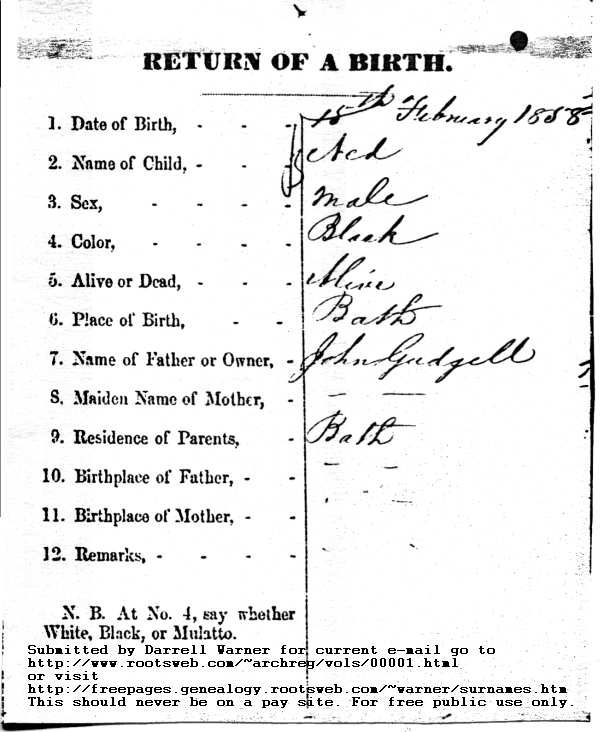 RETURN OF A BIRTH.
1. Date of Birth, - - - 15th February 1858
2. Name of Child, - - - Ned
3. Sex, - - - - male
4. Color, - - - - Black
5. Alive or Dead, - - - Alive
6. Place of Birth, - - Bath
7. Name of Father or Owner, - John Gudgell
8. Maiden Name of Mother, - — —
9. Residence of Parents, - Bath
10. Birthplace of Father, - - — —
11. Birthplace of Mother, - - - —
12. Remarks, - - - -
N. B. At No. 4, say whether
White, Black, or Mulatto.
Submitted by Darrell Warner for current e-mail go to
http://www.rootsweb.com/~archreg/vols/00001.html
or visit
http://freepages.genealogy.rootsweb.com/~warner/surnames.htm
This should never be on a pay site. For free public use only.